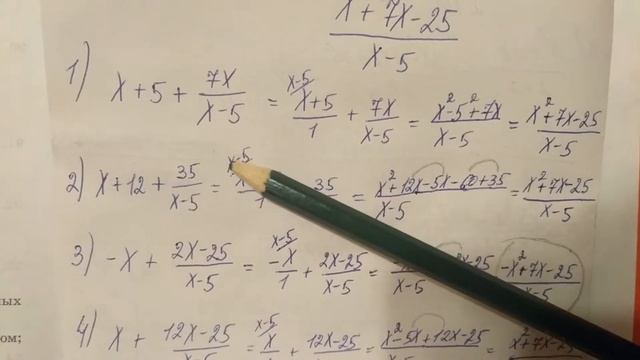 x + 7x - 25 / x - 5
1) x + 5 + 7x / x - 5 = x - 5 x + 5 / 1 + 7x / x - 5 = x² - 5² + 7x / x - 5 = x² + 7x - 25 / x - 5
2) x + 12 + 35 / x - 5 = x - 5 / 1 35 = x² + 12x - 5x - 60 + 35 / x - 5 = x² + 7x - 25 / x - 5
3) -x + 2x - 25 / x - 5 = x - 5 -x / 1 + 2x - 25 / x - 5 = x - 25 / x - 5 -x² + 7x - 25 / x - 5
4) x + 12x - 25 / x - 5 = x - 5 x + 12x - 25 = x² - 5x + 12x - 25 = x² + 7x - 25
ных
ом;